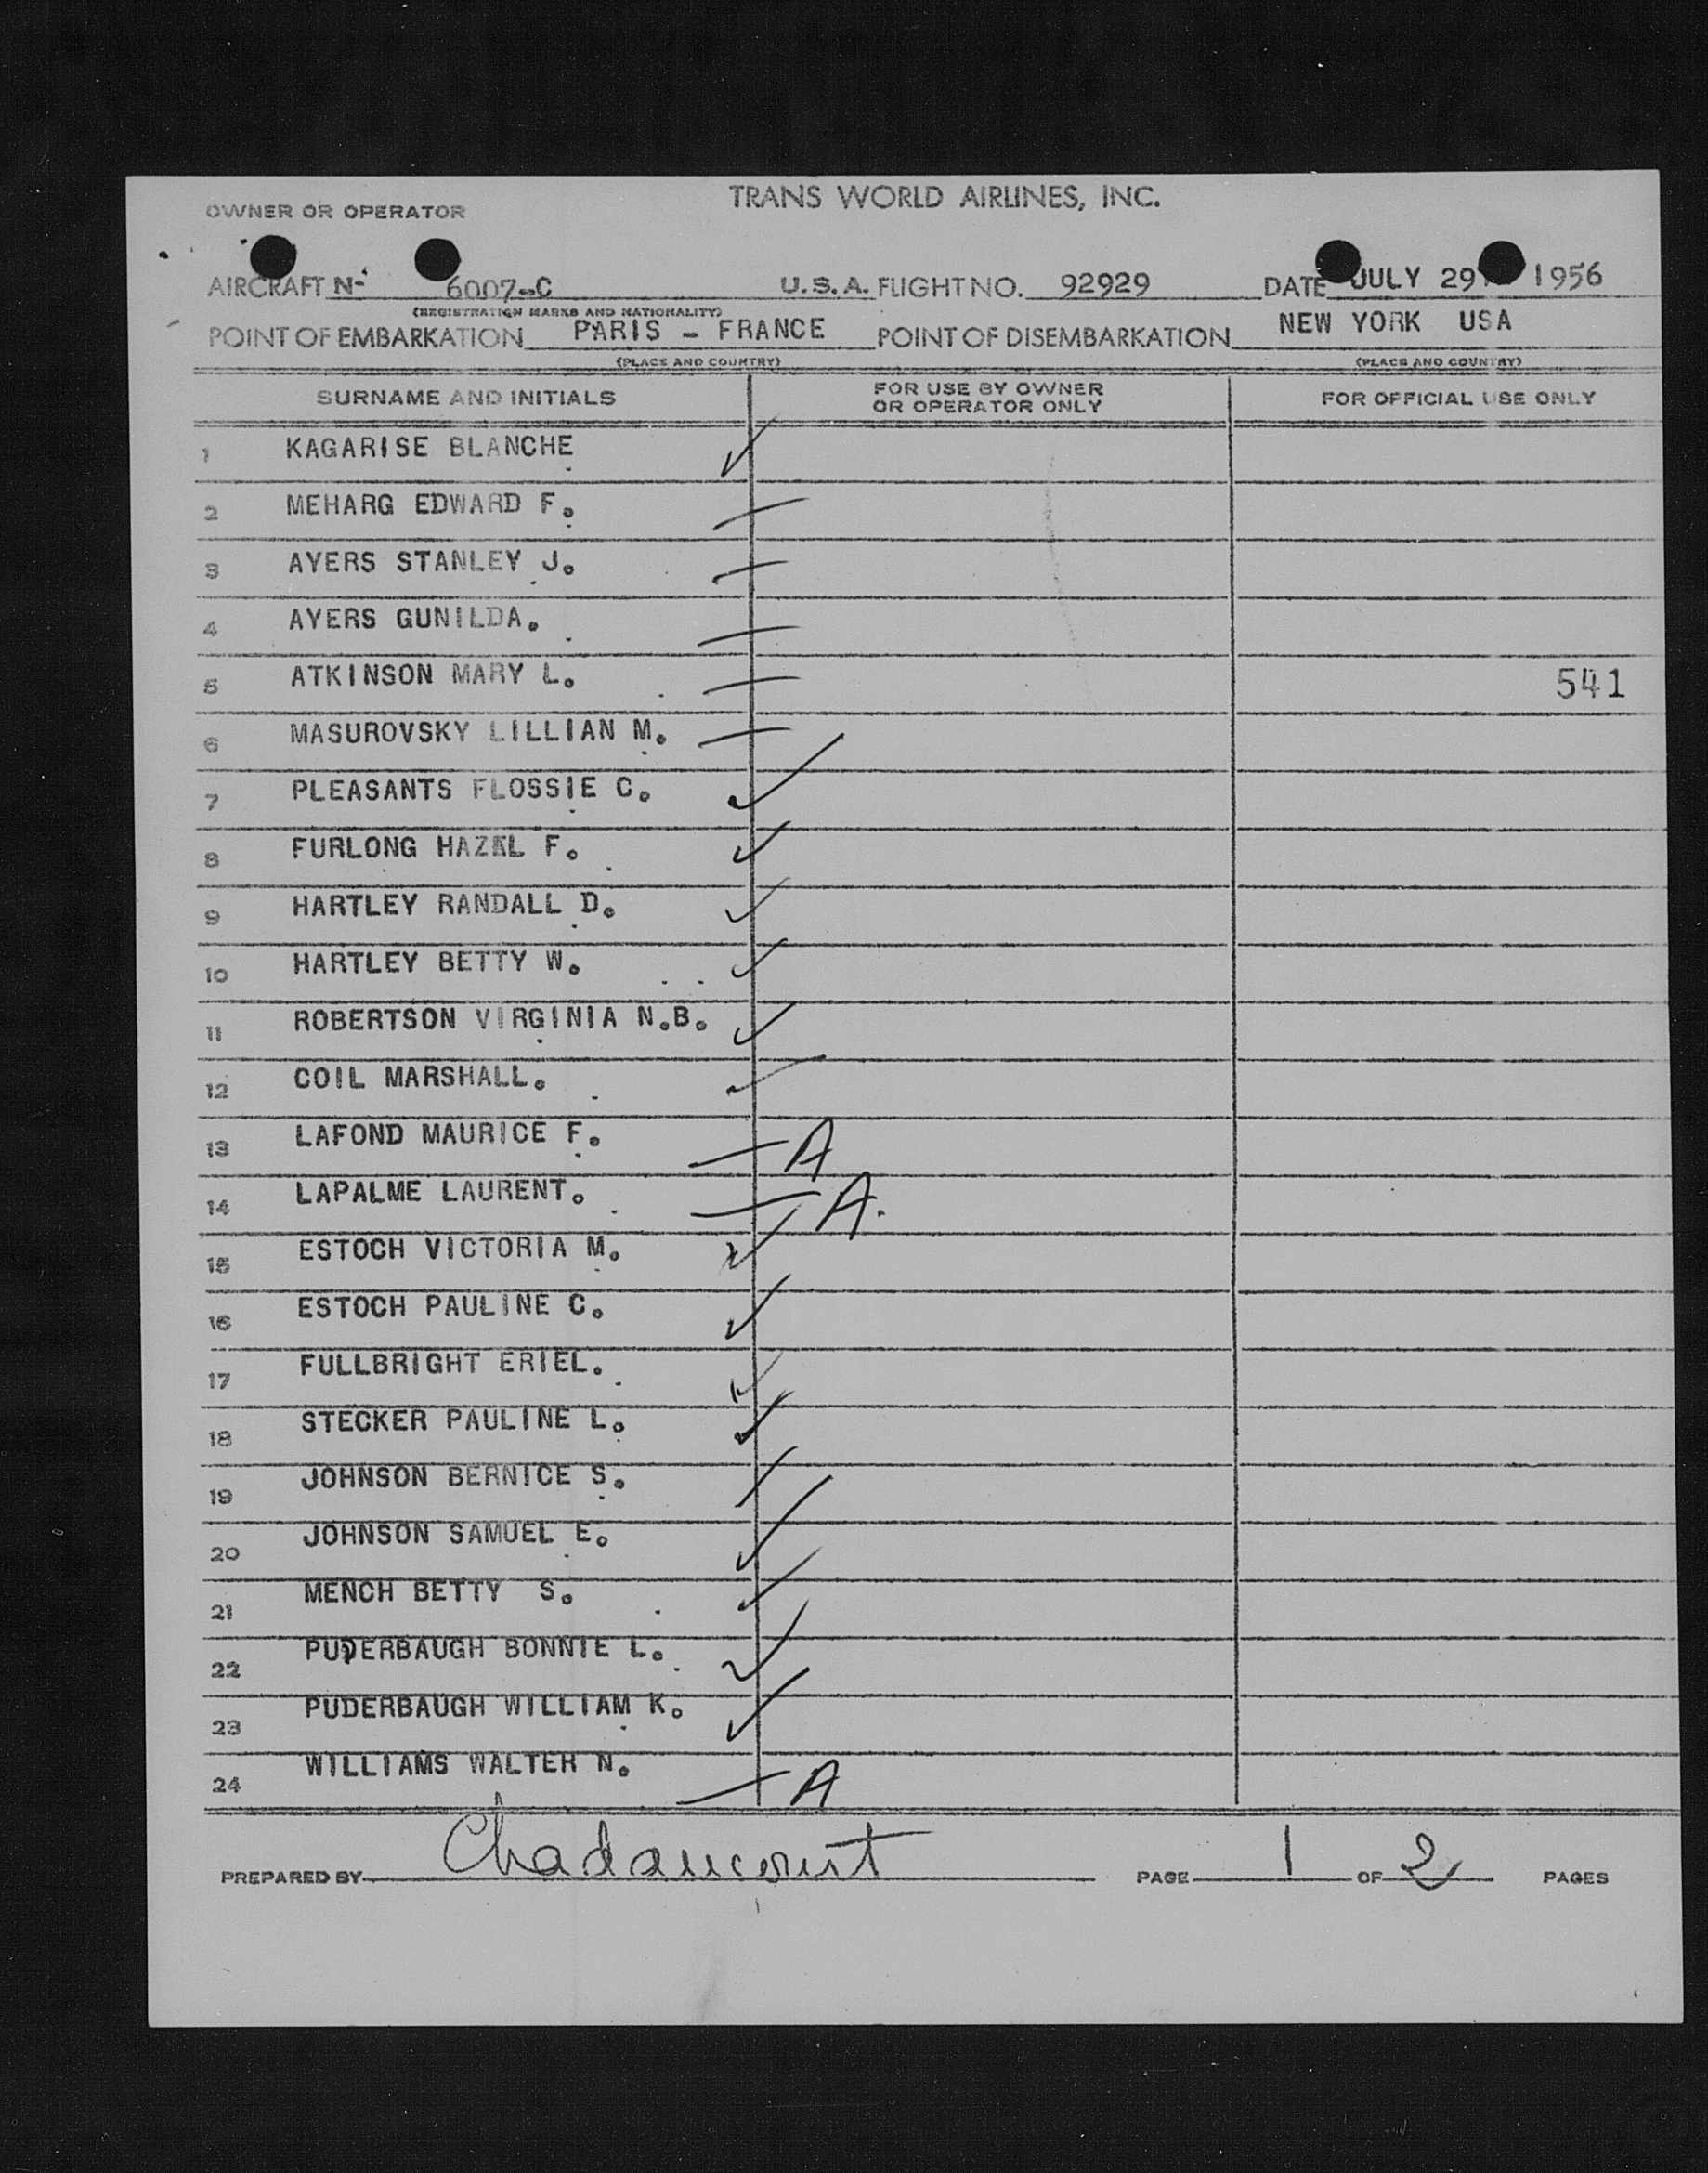 TRANS WORLD AIRLINES, INC.
OWNER OR OPERATOR
AIRCRAFT N- 6007-C U.S.A. FLIGHT NO. 92929 DATE JULY 29 1956
(REGISTRATION MARKS AND NATIONALITY)
POINT OF EMBARKATION PARIS - FRANCE POINT OF DISEMBARKATION NEW YORK USA
(PLACE AND COUNTRY) (PLACE AND COUNTRY)
SURNAME AND INITIALS FOR USE BY OWNER OR OPERATOR ONLY FOR OFFICIAL USE ONLY
1 KAGARISE BLANCHE
2 MEHARG EDWARD F.
3 AYERS STANLEY J.
4 AYERS GUNILDA.
5 ATKINSON MARY L. 541
6 MASUROVSKY LILLIAN M.
7 PLEASANTS FLOSSIE C.
8 FURLONG HAZEL F.
9 HARTLEY RANDALL D.
10 HARTLEY BETTY W.
11 ROBERTSON VIRGINIA N.B.
12 COIL MARSHALL.
13 LAFOND MAURICE F. A
14 LAPALME LAURENT. A.
15 ESTOCH VICTORIA M.
16 ESTOCH PAULINE C.
17 FULLBRIGHT ERIEL.
18 STECKER PAULINE L.
19 JOHNSON BERNICE S.
20 JOHNSON SAMUEL E.
21 MENCH BETTY S.
22 PUDERBAUGH BONNIE L.
23 PUDERBAUGH WILLIAM K.
24 WILLIAMS WALTER N. A
PREPARED BY PAGE 1 OF 2 PAGES